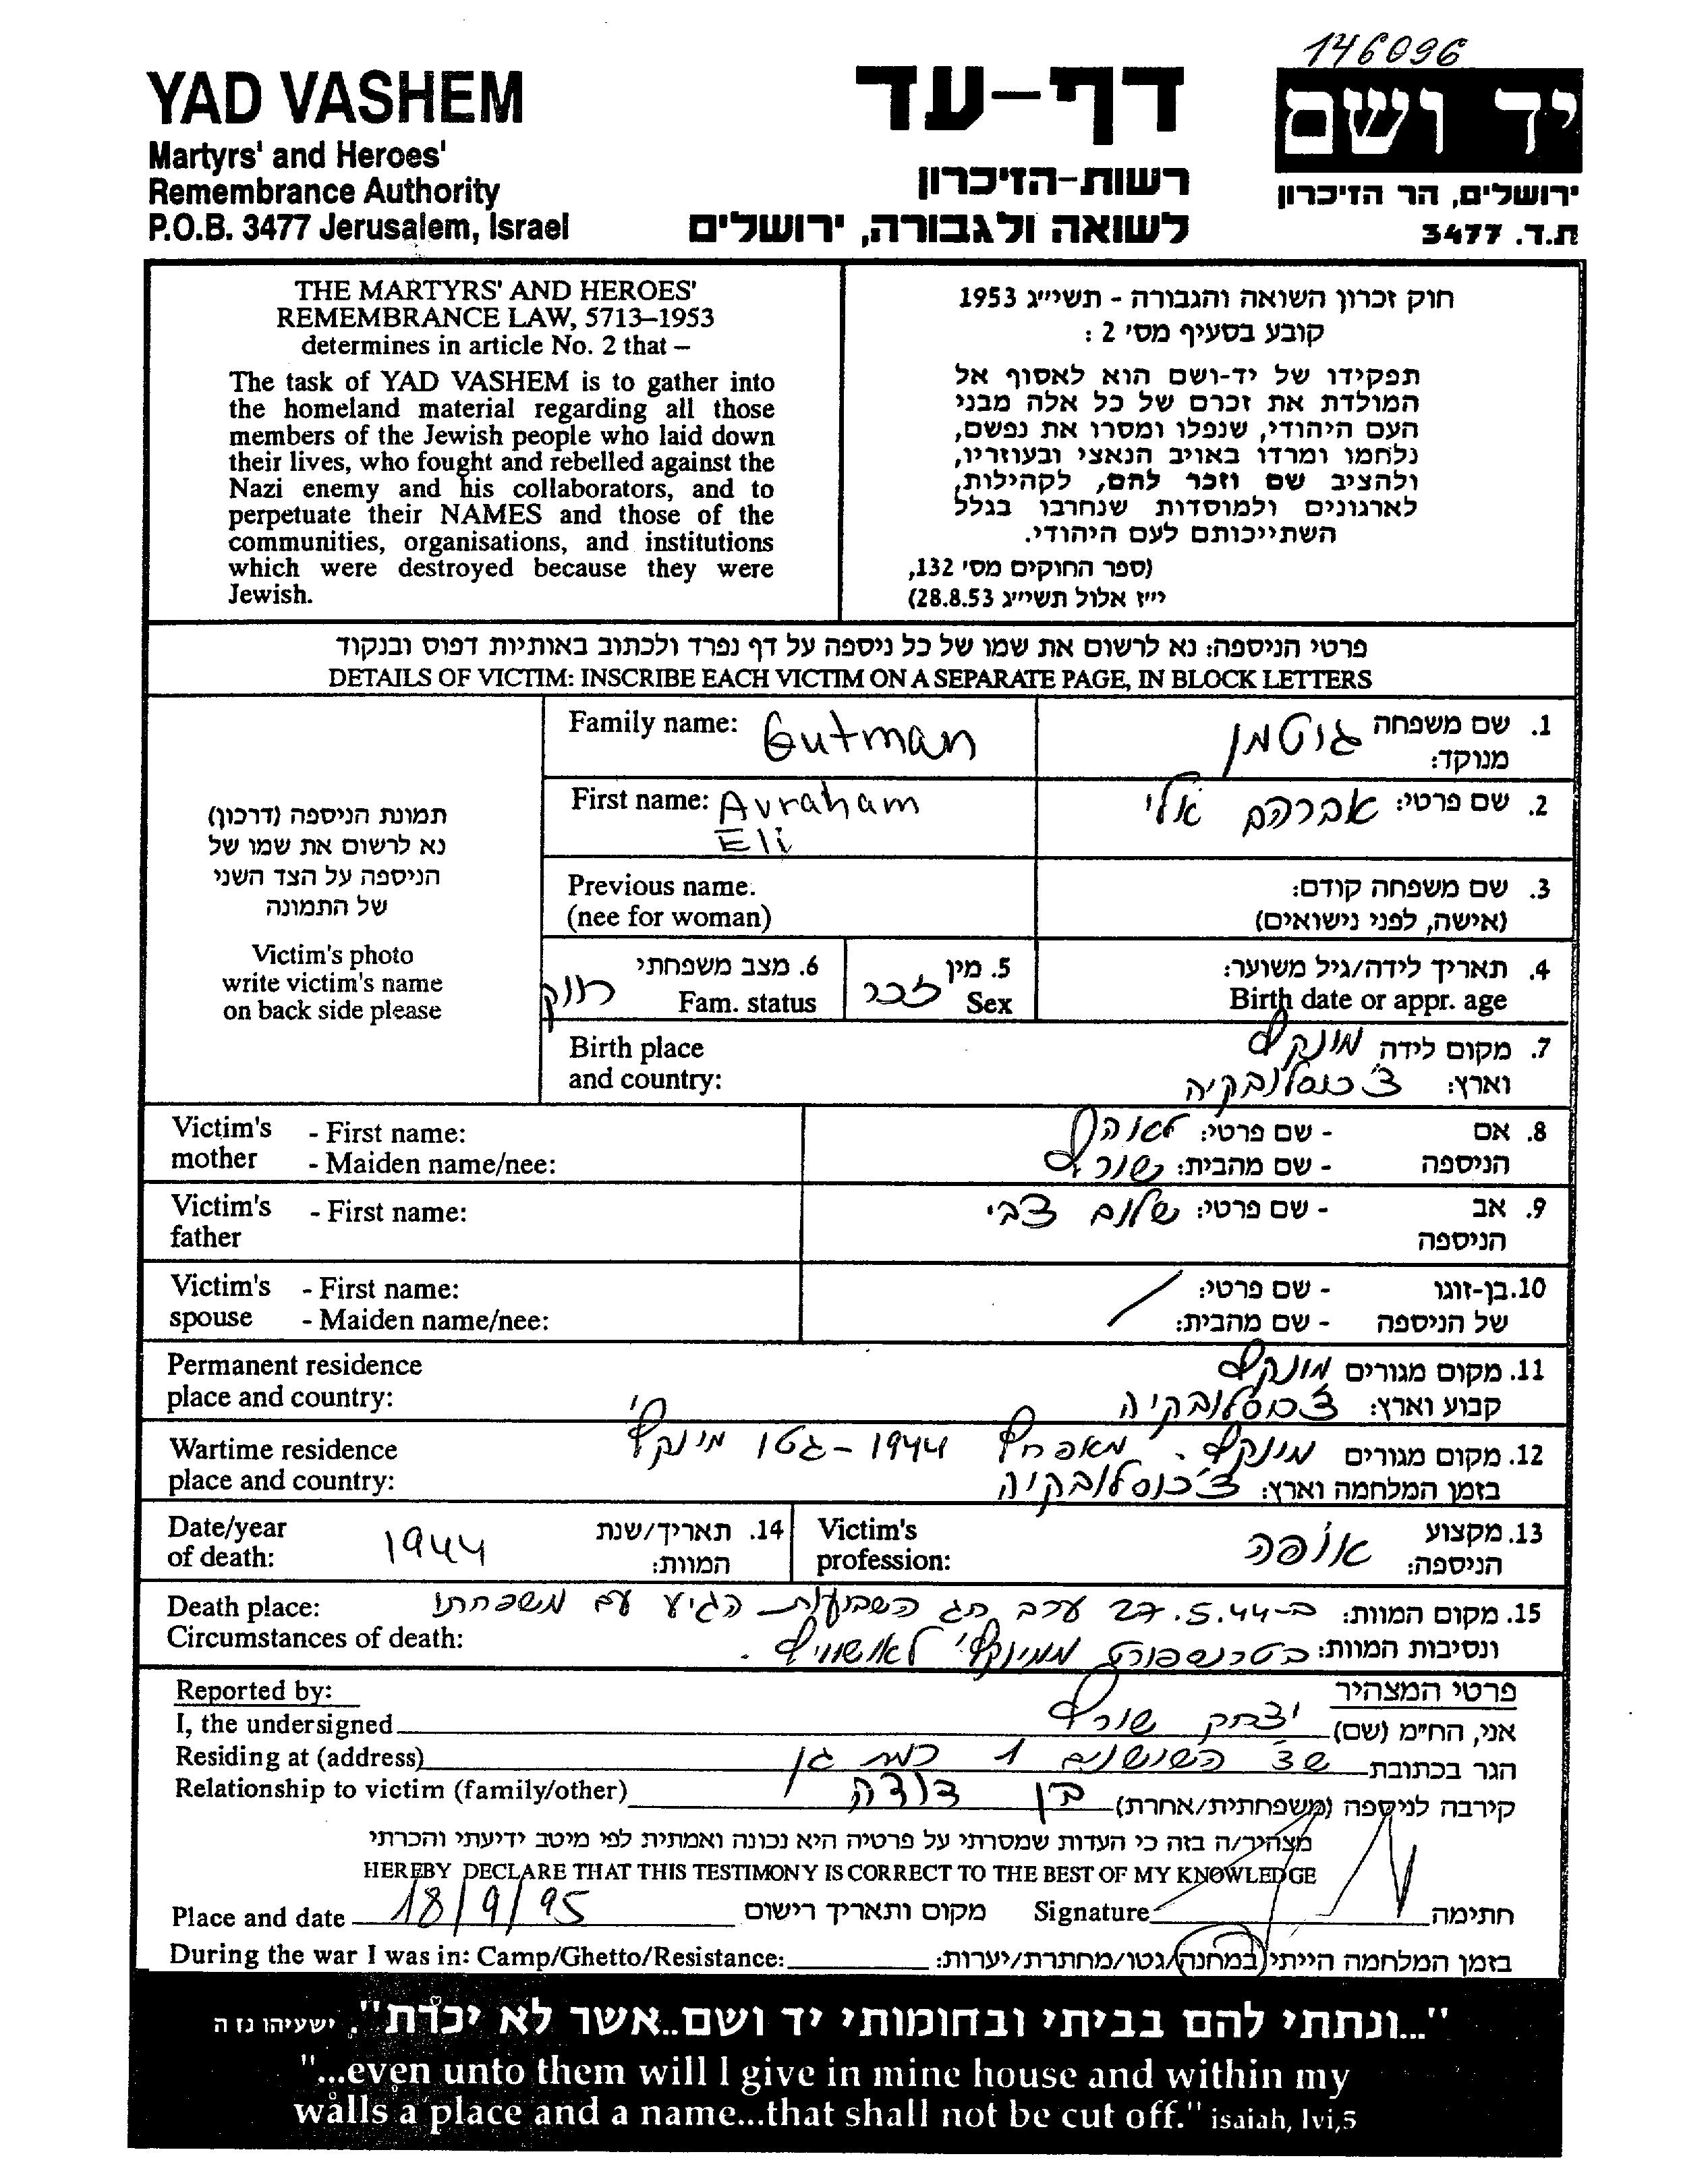 146096
YAD VASHEM
Martyrs' and Heroes'
Remembrance Authority
P.O.B. 3477 Jerusalem, Israel
דף-עד
רשות-הזיכרון
לשואה ולגבורה, ירושלים
יד ושם
ירושלים, הר הזיכרון
ת.ד. 3477
THE MARTYRS' AND HEROES'
REMEMBRANCE LAW, 5713–1953
determines in article No. 2 that –
The task of YAD VASHEM is to gather into
the homeland material regarding all those
members of the Jewish people who laid down
their lives, who fought and rebelled against the
Nazi enemy and his collaborators, and to
perpetuate their NAMES and those of the
communities, organisations, and institutions
which were destroyed because they were
Jewish.
חוק זכרון השואה והגבורה - תשי״ג 1953
קובע בסעיף מס׳ 2 :
תפקידו של יד-ושם הוא לאסוף אל
המולדת את זכרם של כל אלה מבני
העם היהודי, שנפלו ומסרו את נפשם,
נלחמו ומרדו באויב הנאצי ובעוזריו,
ולהציב שם וזכר להם, לקהילות,
לארגונים ולמוסדות שנחרבו בגלל
השתייכותם לעם היהודי.
(ספר החוקים מס׳ 132,
י״ז אלול תשי״ג 28.8.53)
פרטי הניספה: נא לרשום את שמו של כל ניספה על דף נפרד ולכתוב באותיות דפוס ובנקוד
DETAILS OF VICTIM: INSCRIBE EACH VICTIM ON A SEPARATE PAGE, IN BLOCK LETTERS
תמונת הניספה (דרכון)
נא לרשום את שמו של
הניספה על הצד השני
של התמונה
Victim's photo
write victim's name
on back side please
Family name: Gutman
1. שם משפחה גוטמן
מנוקד:
First name: Avraham
Eli
2. שם פרטי: אברהם אלי
Previous name.
(nee for woman)
3. שם משפחה קודם:
(אישה, לפני נישואים)
6. מצב משפחתי רווק
Fam. status
5. מין זכר
Sex
4. תאריך לידה/גיל משוער:
Birth date or appr. age
Birth place
and country:
7. מקום לידה מונקץ
וארץ: צ'כוסלובקיה
Victim's - First name:
mother - Maiden name/nee:
8. אם - שם פרטי: לאה
הניספה - שם מהבית: שורץ
Victim's - First name:
father
9. אב - שם פרטי: שלום צבי
הניספה
Victim's - First name:
spouse - Maiden name/nee:
10. בן-זוגו - שם פרטי:
של הניספה - שם מהבית:
Permanent residence
place and country:
11. מקום מגורים מונקץ
קבוע וארץ: צ'כוסלובקיה
Wartime residence
place and country:
12. מקום מגורים מונקץ. מאפריל 1944 - גטו מונקץ'
בזמן המלחמה וארץ: צ'כוסלובקיה
Date/year
of death: 1944
14. תאריך/שנת
המוות:
Victim's
profession:
13. מקצוע אופה
הניספה:
Death place:
Circumstances of death:
15. מקום המוות: ב-27.5.44 ערב חג השבועות הגיע עם משפחתו
ונסיבות המוות: בטרנספורט ממונקץ' לאושוויץ.
Reported by:
פרטי המצהיר
I, the undersigned
אני, הח״מ (שם) יצחק שורץ
Residing at (address)
הגר בכתובת שד השושנים 1 רמת גן
Relationship to victim (family/other)
קירבה לניספה (משפחתית/אחרת) בן דודה
מצהיר/ה בזה כי העדות שמסרתי על פרטיה היא נכונה ואמתית לפי מיטב ידיעתי והכרתי
HEREBY DECLARE THAT THIS TESTIMONY IS CORRECT TO THE BEST OF MY KNOWLEDGE
Place and date 18/9/95 מקום ותאריך רישום Signature חתימה
During the war I was in: Camp/Ghetto/Resistance: בזמן המלחמה הייתי במחנה/גטו/מחתרת/יערות:
"...ונתתי להם בביתי ובחומותי יד ושם..אשר לא יכרת". ישעיהו נו ה
"...even unto them will I give in mine house and within my
walls a place and a name...that shall not be cut off." isaiah, lvi,5